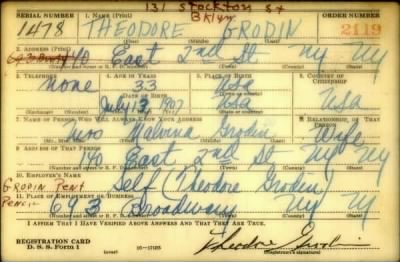 131 Stockton St
Bklyn
SERIAL NUMBER 1. NAME (Print) ORDER NUMBER
1478 THEODORE GRODIN 2119
(First) (Middle) (Last)
2. ADDRESS (Print)
140 East 2nd St NY NY
(Number and street or R. F. D. number) (Town) (County) (State)
3. TELEPHONE 4. AGE IN YEARS 5. PLACE OF BIRTH 6. COUNTRY OF CITIZENSHIP
none 33 USA
DATE OF BIRTH
July 13, 1907 USA USA
7. NAME OF PERSON WHO WILL ALWAYS KNOW YOUR ADDRESS 8. RELATIONSHIP OF THAT PERSON
Mrs Malvina Grodin Wife
9. ADDRESS OF THAT PERSON
140 East 2nd St NY NY
(Number and street or R. F. D. number) (Town) (County) (State)
10. EMPLOYER'S NAME
GRODIN Pent Self (Theodore Grodin)
11. PLACE OF EMPLOYMENT OR BUSINESS
Pencil 693 Broadway NY NY
(Number and street or R. F. D. number) (Town) (County) (State)
I AFFIRM THAT I HAVE VERIFIED ABOVE ANSWERS AND THAT THEY ARE TRUE.
REGISTRATION CARD
D. S. S. Form 1 (over) 16—17105 Theodore Grodin
(Registrant's signature)